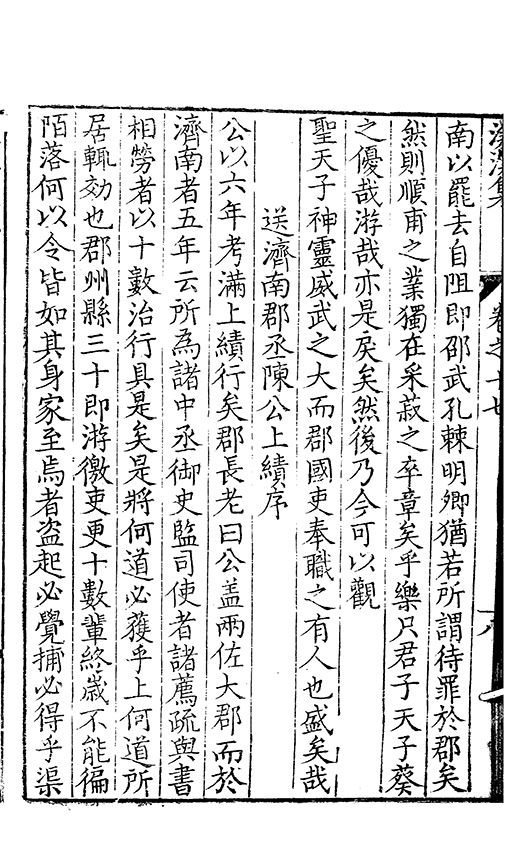 卷之十七
南以罷去自阻即邵武孔棘明卿猶若所謂待罪於郡矣
然則順甫之業獨在采菽之卒章矣乎樂只君子天子葵
之優哉游哉亦是戾矣然後乃今可以觀
聖天子神靈威武之大而郡國吏奉職之有人也盛矣哉
送濟南郡丞陳公上績序
公以六年考滿上績行矣郡長老曰公盖兩佐大郡而於
濟南者五年云所為諸中丞御史監司使者諸薦疏與書
相勞者以十數治行具是矣是將何道必獲乎上何道所
居輒効也郡州縣三十即游徼吏更十數輩終歲不能徧
陌落何以令皆如其身家至焉者盗起必覺捕必得乎渠